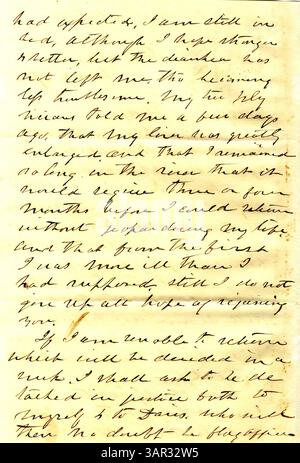 had expected, I am still in
bed, although I hope stronger
& better, but the diarrhea has
not left me, tho becoming
less troublesome. My
told me a few days
ago, that my liver was greatly
enlarged and that I remained
so long in the river that it
would require three or four
months before I could return
without jeopardizing my life
and that from the first
I was more ill than I
had supposed, still I do not
give up all hope of rejoining
you.
If I am unable to return
which will be decided in a
week, I shall ask to be de
tached in justice both to
myself & to Davis, who will
then no doubt be flag officer
alamy
Image ID: 3AR32W5
www.alamy.com